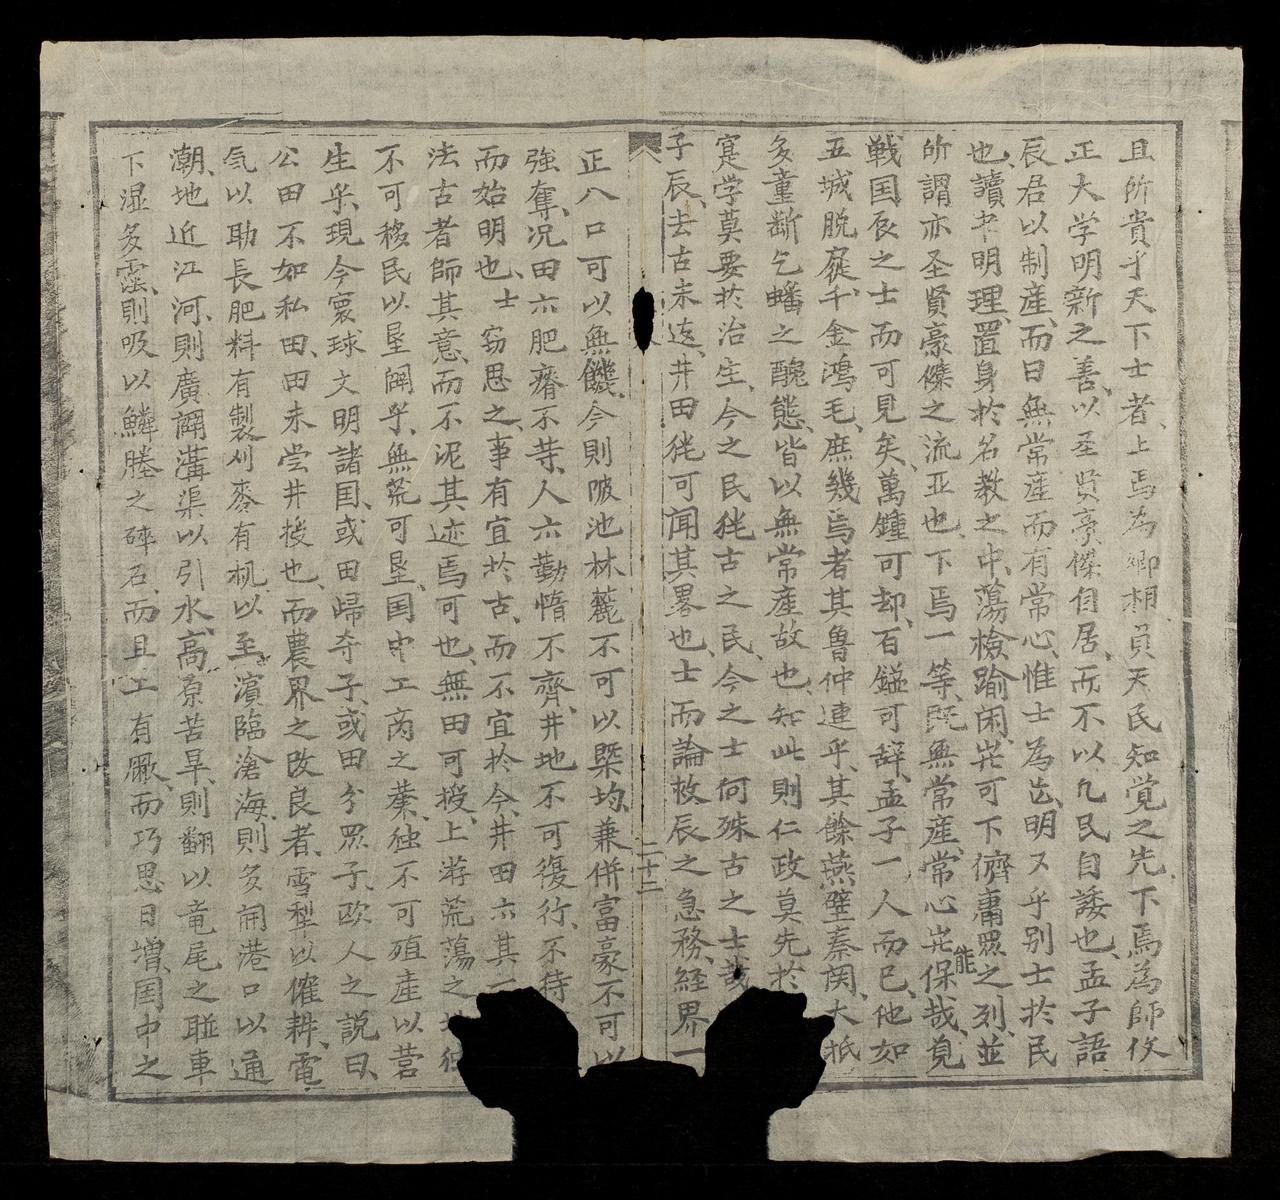 且所貴乎天下士者、上焉為卿相、負天民知覚之先、下焉為師、攸
正大学明新之善、以圣賢豪傑自居、而不以凡民自諉也、孟子語
辰君以制産、而曰無常産而有常心、惟士為㠯、明又乎别士於民
也、讀书明理、置身於名教之中、蕩檢踰闲、岂可下儕庸眾之列、並
所謂亦圣賢豪傑之流亚也、下焉一等、既無常産、常心岂能保哉、覓
戦国辰之士而可見矣、萬鍾可却、百鎰可辞、孟子一人而已、他如
五城脱屣、千金鴻毛、庶幾焉者其魯仲連乎、其餘燕璧秦関、大抵
多童斷乞蟠之醜態、皆以無常産故也、知此則仁政莫先於
寔学莫要於治生、今之民犹古之民、今之士何殊古之士哉
子辰、去古未远、井田犹可闻其畧也、士而論救辰之急務、経界一
二十二
正八口可以無饑、今則陂池林麓不可以槩均、兼併富豪不可以
強奪、况田六肥瘠不䓁、人六勤惰不齊、井地不可復行、不待
而始明也、士窃思之、事有宜於古、而不宜於今、井田六其一
法古者師其意、而不泥其迹焉可也、無田可授、上游荒蕩之地
不可移民以垦闢乎、無荒可垦、国中工商之業、独不可殖産以营
生乎、現今寰球文明諸国、或田歸奇子、或田分眾子、欧人之説曰、
公田不如私田、田未尝井授也、而農界之改良者、雪犁以催耕、電
気以助長、肥料有製、刈麥有机、以至濱臨滄海、則多闹港口以通
潮、地近江河、則廣闢溝渠以引水、高原苦旱、則翻以竜尾之䢛車
下湿多霪、則吸以鱗塍之碎石、而且工有廠、而巧思日增、国中之